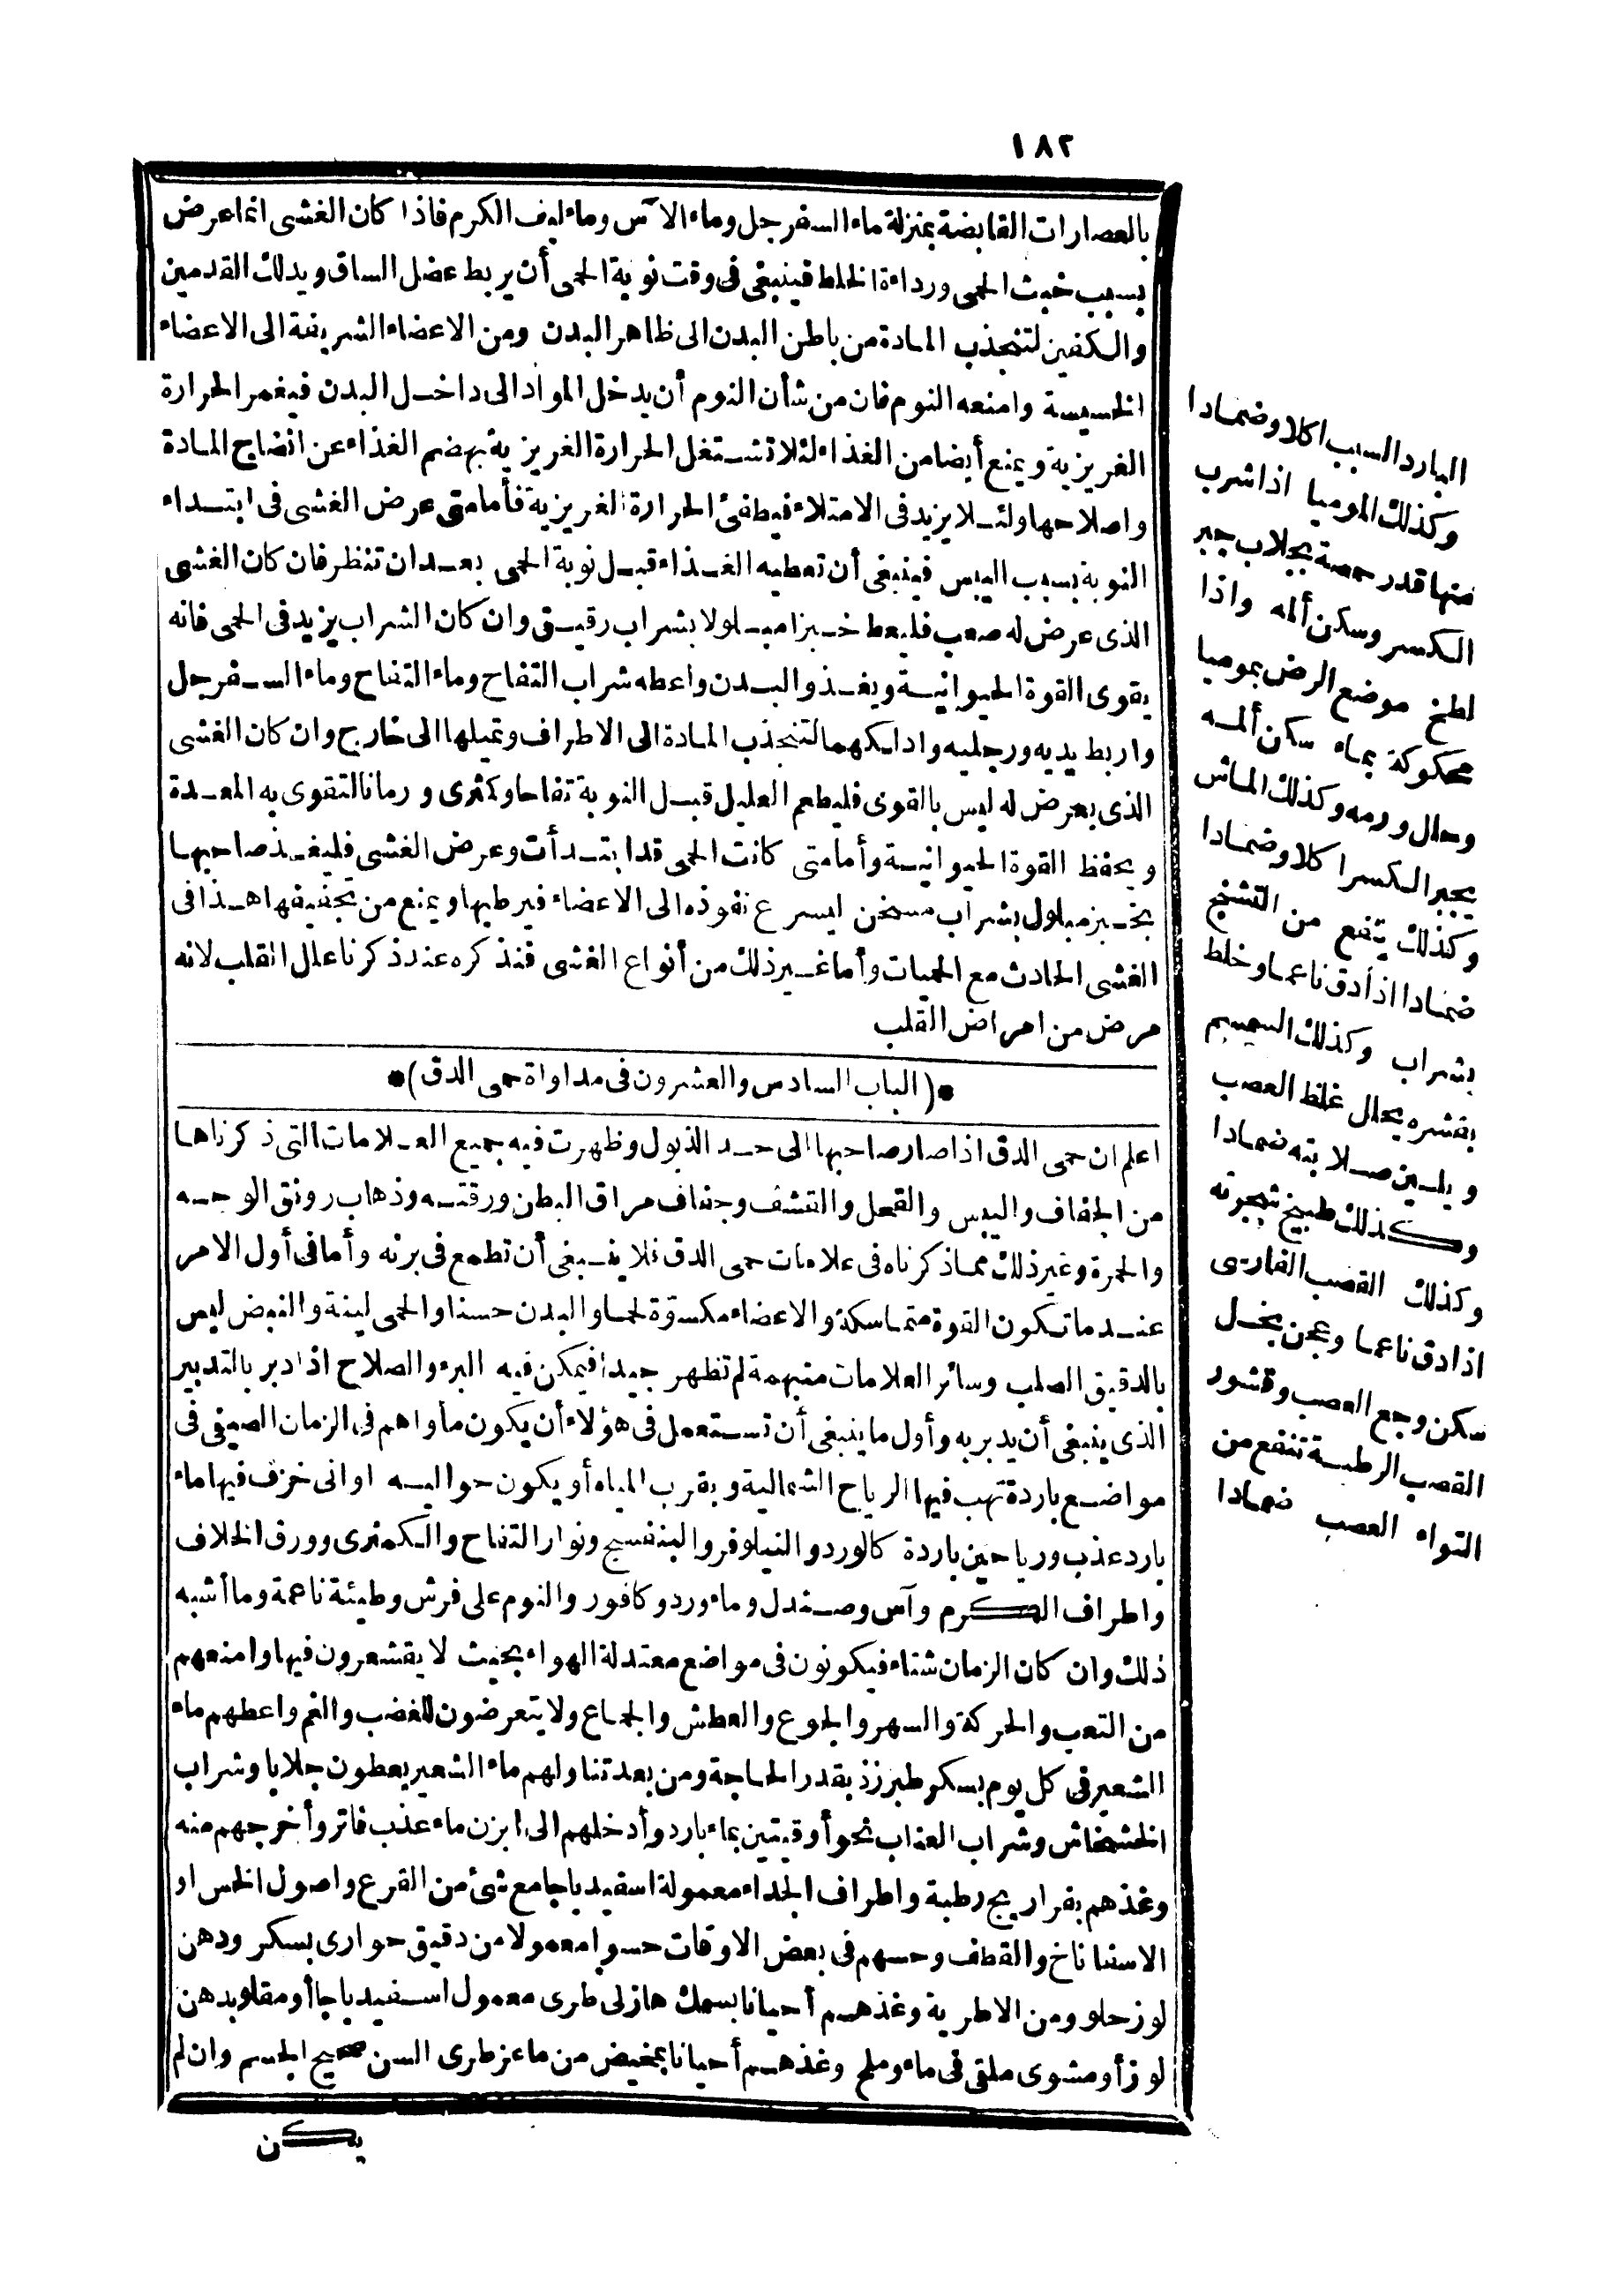 ١٨٢
بالعصارات القابضة بمنزلة ماء السفرجل وماء الآس وماء ليف الكرم فاذا كان الغشى انما عرض
بسبب خبث الحمى ورداءة الخلط فينبغى فى وقت نوبة الحمى أن يربط عضل الساق ويدلك القدمين
والكفين لتنجذب المادة من باطن البدن الى ظاهر البدن ومن الاعضاء الشريفة الى الاعضاء
الخسيسة وامنعه النوم فان من شأن النوم أن يدخل المواد الى داخل البدن فيغمر الحرارة
الغريزية ويمنع أيضا من الغذاء لئلا تشتغل الحرارة الغريزية بهضم الغذاء عن انضاج المادة
واصلاحها ولئلا يزيد فى الامتلاء فيطفئ الحرارة الغريزية فأما متى عرض الغشى فى ابتداء
النوبة بسبب اليبس فينبغى أن تعطيه الغذاء قبل نوبة الحمى بعد ان تنظر فان كان الغشى
الذى عرض له صعب فليعط خبزا مبلولا بشراب رقيق وان كان الشراب يزيد فى الحمى فانه
يقوى القوة الحيوانية ويغذو البدن واعطه شراب التفاح وماء التفاح وماء السفرجل
واربط يديه ورجليه وادلكهما لتنجذب المادة الى الاطراف وتميلها الى خارج وان كان الغشى
الذى يعرض له ليس بالقوى فليطعم العليل قبل النوبة تفاحا وكمثرى ورمانا لتقوى به المعدة
ويحفظ القوة الحيوانية وأما متى كانت الحمى قد ابتدأت وعرض الغشى فليغذ صاحبها
بخبز مبلول بشراب مسخن ليسرع نفوذه الى الاعضاء فيرطبها ويمنع من تجفيفها هذا فى
الغشى الحادث مع الحميات وأما غير ذلك من أنواع الغشى فنذكره عند ذكرنا علل القلب لانه
مرض من امراض القلب
*(الباب السادس والعشرون فى مداواة حمى الدق)*
اعلم ان حمى الدق اذا صار صاحبها الى حد الذبول وظهرت فيه جميع العلامات التى ذكرناها
من الجفاف واليبس والقحل والقشف وجفاف مراق البطن ورقته وذهاب رونق الوجه
والحمرة وغير ذلك مما ذكرناه فى علامات حمى الدق فلا ينبغى أن تطمع فى برئه وأما فى أول الامر
عند ما تكون القوة متماسكة والاعضاء مكسوة لحما والبدن حسنا والحمى لينة والنبض ليس
بالدقيق الصلب وسائر العلامات منبهمة لم تظهر جيدا فيمكن فيه البرء والصلاح اذا دبر بالتدبير
الذى ينبغى أن يدبر به وأول ما ينبغى أن تستعمل فى هؤلاء أن يكون مأواهم فى الزمان الصيفى فى
مواضع باردة تهب فيها الرياح الشمالية وبقرب المياه أو يكون حواليه اوانى خزف فيها ماء
بارد عذب ورياحين باردة كالورد والنيلوفر والبنفسج ونوار التفاح والكمثرى وورق الخلاف
واطراف الكرم وآس وصندل وماء ورد وكافور والنوم على فرش وطيئة ناعمة وما أشبه
ذلك وان كان الزمان شتاء فيكونون فى مواضع معتدلة الهواء بحيث لا يقشعرون فيها وامنعهم
من التعب والحركة والسهر والجوع والعطش والجماع ولا يتعرضون للغضب والغم واعطهم ماء
الشعير فى كل يوم بسكر طبرزذ بقدر الحاجة ومن بعد تناولهم ماء الشعير يعطون جلابا وشراب
الخشخاش وشراب العناب نحو أوقيتين بماء بارد وأدخلهم الى ابزن ماء عذب فاتر وأخرجهم منه
وغذهم بفراريج رطبة واطراف الجداء معمولة اسفيدباجا مع شئ من القرع واصول الخس او
الاسفاناخ والقطف وحسهم فى بعض الاوقات حسوا معمولا من دقيق حوارى بسكر ودهن
لوز حلو ومن الاطرية وغذهم أحيانا بسمك هازلى طرى معمول اسفيدباجا أو مقلو بدهن
لوز أو مشوى ملقى فى ماء وملح وغذهم أحيانا بمخيض من ماعز طرى السن صحيح الجسم وان لم
يكن
البارد السبب اكلا وضمادا
وكذلك الموميا اذا شرب
منها قدر حمصة بجلاب جبر
الكسر وسكن ألمه واذا
لطخ موضع الرض بموميا
محكوكة بماء سكن ألمه
وحلل ورمه وكذلك الماش
يجبر الكسر اكلا وضمادا
وكذلك ينفع من التشنج
ضمادا اذا دق ناعما وخلط
بشراب وكذلك السمسم
بقشره يحلل غلظ العصب
ويلين صلابته ضمادا
وكذلك طبيخ شجرته
وكذلك القصب الفارسى
اذا دق ناعما وعجن بخل
سكن وجع العصب وقشور
القصب الرطبة تنفع من
التواء العصب ضمادا